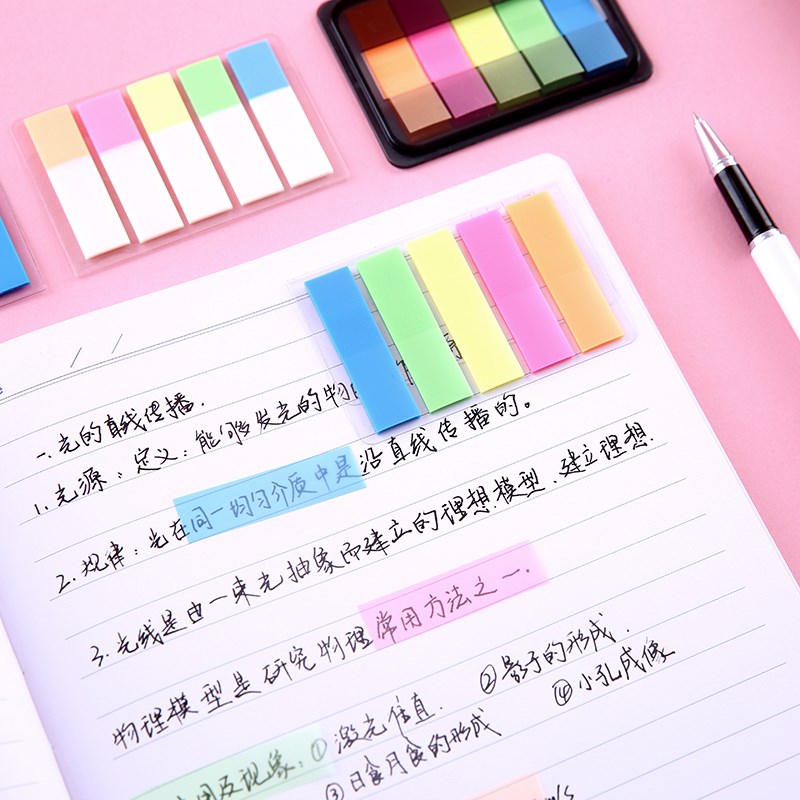 一.光的直线传播.
1.光源:定义:能够发光的物
2.规律:光在同一均匀介质中是沿直线传播的。
3.光线是由一束光抽象而建立的理想模型.建立理想
物理模型是研究物理常用方法之一.
用及现象:①激光准直. ②影子的形成.
③日食月食的形成 ④小孔成像
m/s